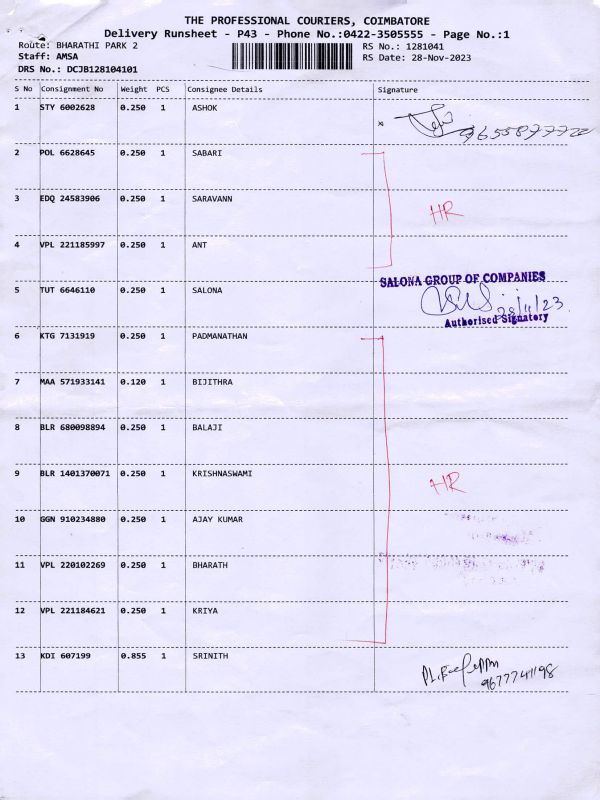 THE PROFESSIONAL COURIERS, COIMBATORE
Delivery Runsheet - P43 - Phone No.:0422-3505555 - Page No.:1
Route: BHARATHI PARK 2 RS No.: 1281041
Staff: AMSA RS Date: 28-Nov-2023
DRS No.: DCJB128104101
S No Consignment No Weight PCS Consignee Details Signature
1 STY 6002628 0.250 1 ASHOK
9655877722
2 POL 6628645 0.250 1 SABARI
3 EDQ 24583906 0.250 1 SARAVANN
HR
4 VPL 221185997 0.250 1 ANT
SALONA GROUP OF COMPANIES
5 TUT 6646110 0.250 1 SALONA
28/11/23
Authorised Signatory
6 KTG 7131919 0.250 1 PADMANATHAN
7 MAA 571933141 0.120 1 BIJITHRA
8 BLR 680098894 0.250 1 BALAJI
9 BLR 1401370071 0.250 1 KRISHNASWAMI
HR
10 GGN 910234880 0.250 1 AJAY KUMAR
11 VPL 220102269 0.250 1 BHARATH
12 VPL 221184621 0.250 1 KRIYA
13 KDI 607199 0.855 1 SRINITH
9677741198